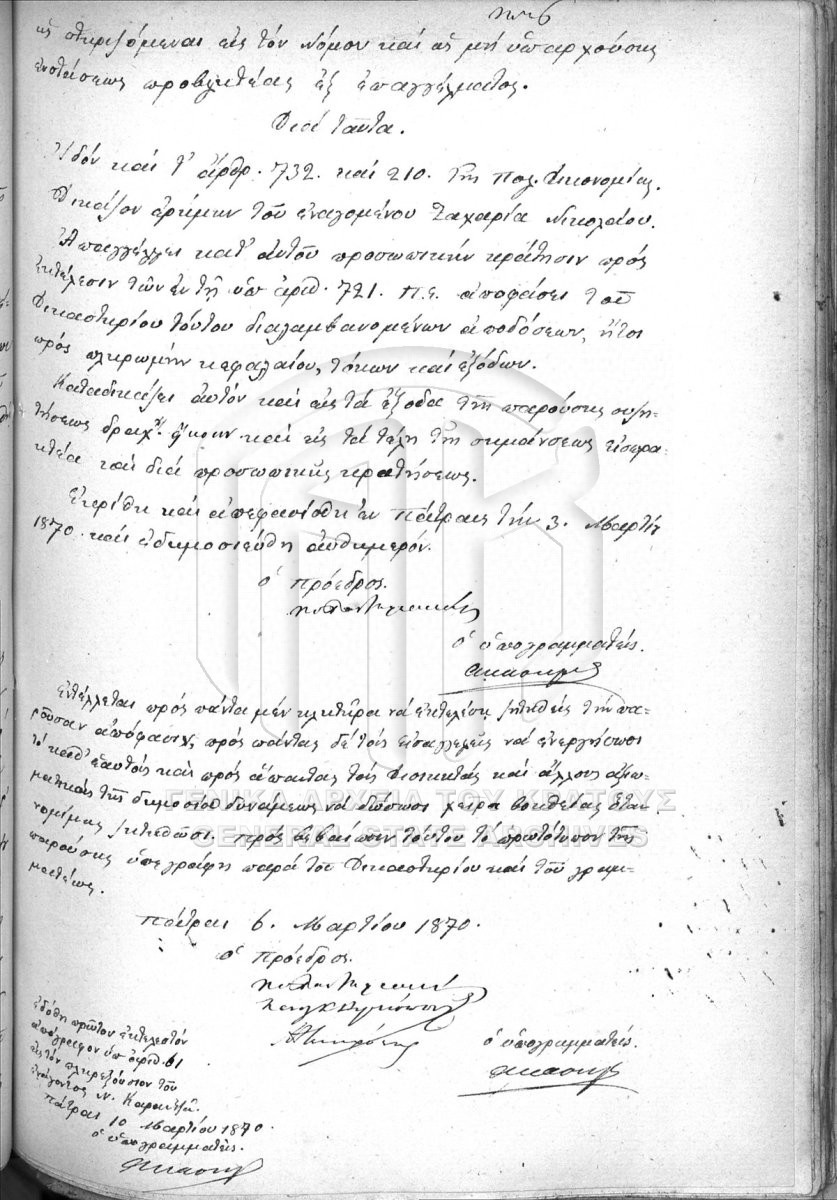 ὡς στηριζόμεναι εἰς τόν Νόμον καί ὡς μή ὑπαρχούσης
ἐνστάσεως προβλητέας ἐξ ἐπαγγέλματος.
Διά ταῦτα.
Ἰδόν καί τ' ἄρθρ. 732. καί 210. τῆς πολ. Δικονομίας.
Δικάζον ἐρήμην τοῦ ἐναγομένου Ζαχαρία Νικολαίου.
Ἀπαγγέλλει κατ' αὐτοῦ προσωπικήν κράτησιν πρός
ἐκτέλεσιν τῶν ἐν τῇ ὑπ' ἀριθ. 721. π.ε. ἀποφάσει τοῦ
Δικαστηρίου τούτου διαλαμβανομένων ἀποδόσεων, ἤτοι
πρός πληρωμήν κεφαλαίου, τόκων καί ἐξόδων.
Καταδικάζει αὐτόν καί εἰς τά ἔξοδα τῆς παρούσης συζη-
τήσεως δραχ. εἴκοσιν καί εἰς τά τέλη τῆς σημάνσεως εἰσπρα-
κτέα καί διά προσωπικῆς κρατήσεως.
Ἐκρίθη καί ἀπεφασίσθη ἐν Πάτραις τήν 3. Μαρτίου
1870. καί ἐδημοσιεύθη αὐθημερόν.
ὁ Πρόεδρος.
ὁ ὑπογραμματεύς.
Ἐντέλλεται πρός πάντα μέν κλητῆρα νά ἐκτελέσῃ ζητηθείς τήν πα-
ροῦσαν ἀπόφασιν, πρός πάντας δέ τούς εἰσαγγελεῖς νά ἐνεργήσωσι
τό καθ' ἑαυτούς καί πρός ἅπαντας τούς Διοικητάς καί ἄλλους ἀξιω-
ματικούς τῆς δημοσίου δυνάμεως νά δώσωσι χεῖρα βοηθείας ὅταν
νομίμως ζητηθῶσι. πρός βεβαίωσιν τούτου τό πρωτότυπον τῆς
παρούσης ὑπεγράφη παρά τοῦ Δικαστηρίου καί τοῦ γραμ-
ματέως.
Πάτραι 6. Μαρτίου 1870.
ὁ Πρόεδρος.
ὁ ὑπογραμματεύς.
Ἐδόθη πρῶτον ἐκτελεστόν
ἀπόγραφον ὑπ' ἀριθ. 61
εἰς τόν πληρεξούσιον τοῦ
ἐνάγοντος Ν.
Πάτραι 10 Μαρτίου 1870.
ὁ ὑπογραμματεύς.
ΓΕΝΙΚΑ ΑΡΧΕΙΑ ΤΟΥ ΚΡΑΤΟΥΣ
GENERAL STATE ARCHIVES